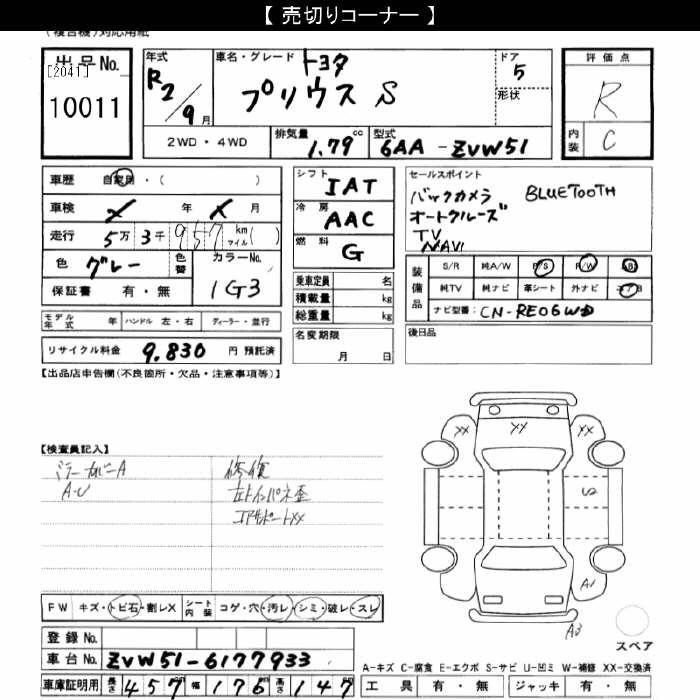 【 売切りコーナー 】
(複合機)対応用紙
出品No.
[2041]
10011
年式
R2/9月
車名・グレード
トヨタ
プリウス S
ドア
5
形状
評価点
R
内装
C
2WD・4WD
排気量
1.79cc
型式
6AA-ZVW51
車歴 自家用・( )
車検 年 月
走行 5万 3千 957 km マイル( )
色 グレー
色替
カラーNo.
1G3
保証書 有・無
シフト
IAT
冷房
AAC
燃料
G
乗車定員 名
積載量 kg
総重量 kg
セールスポイント
バックカメラ BLUETOOTH
オートクルーズ
TV
NAVI
装備品
S/R 純A/W P/S P/W AB
純TV 純ナビ 革シート 外ナビ エアB
ナビ型番: CN-RE06WD
モデル年式 年 ハンドル 左・右 ディーラー・並行
リサイクル料金 9,830 円 預託済
名変期限
月 日
後日品
【出品店申告欄(不良箇所・欠品・注意事項等)】
XX XX XX
S
A1
A3
【検査員記入】
ミラーカバーA 修復
A・U 左トインパネ歪
コアサポートXX
FW キズ・トビ石・割レX シート内装 コゲ・穴・汚レ・シミ・破レ・スレ
登録No.
車台No. ZVW51-6177933
車庫証明用 長さ 457 幅 176 高さ 147
スペア
A-キズ C-腐食 E-エクボ S-サビ U-凹ミ W-補修 XX-交換済
工具 有・無 ジャッキ 有・無